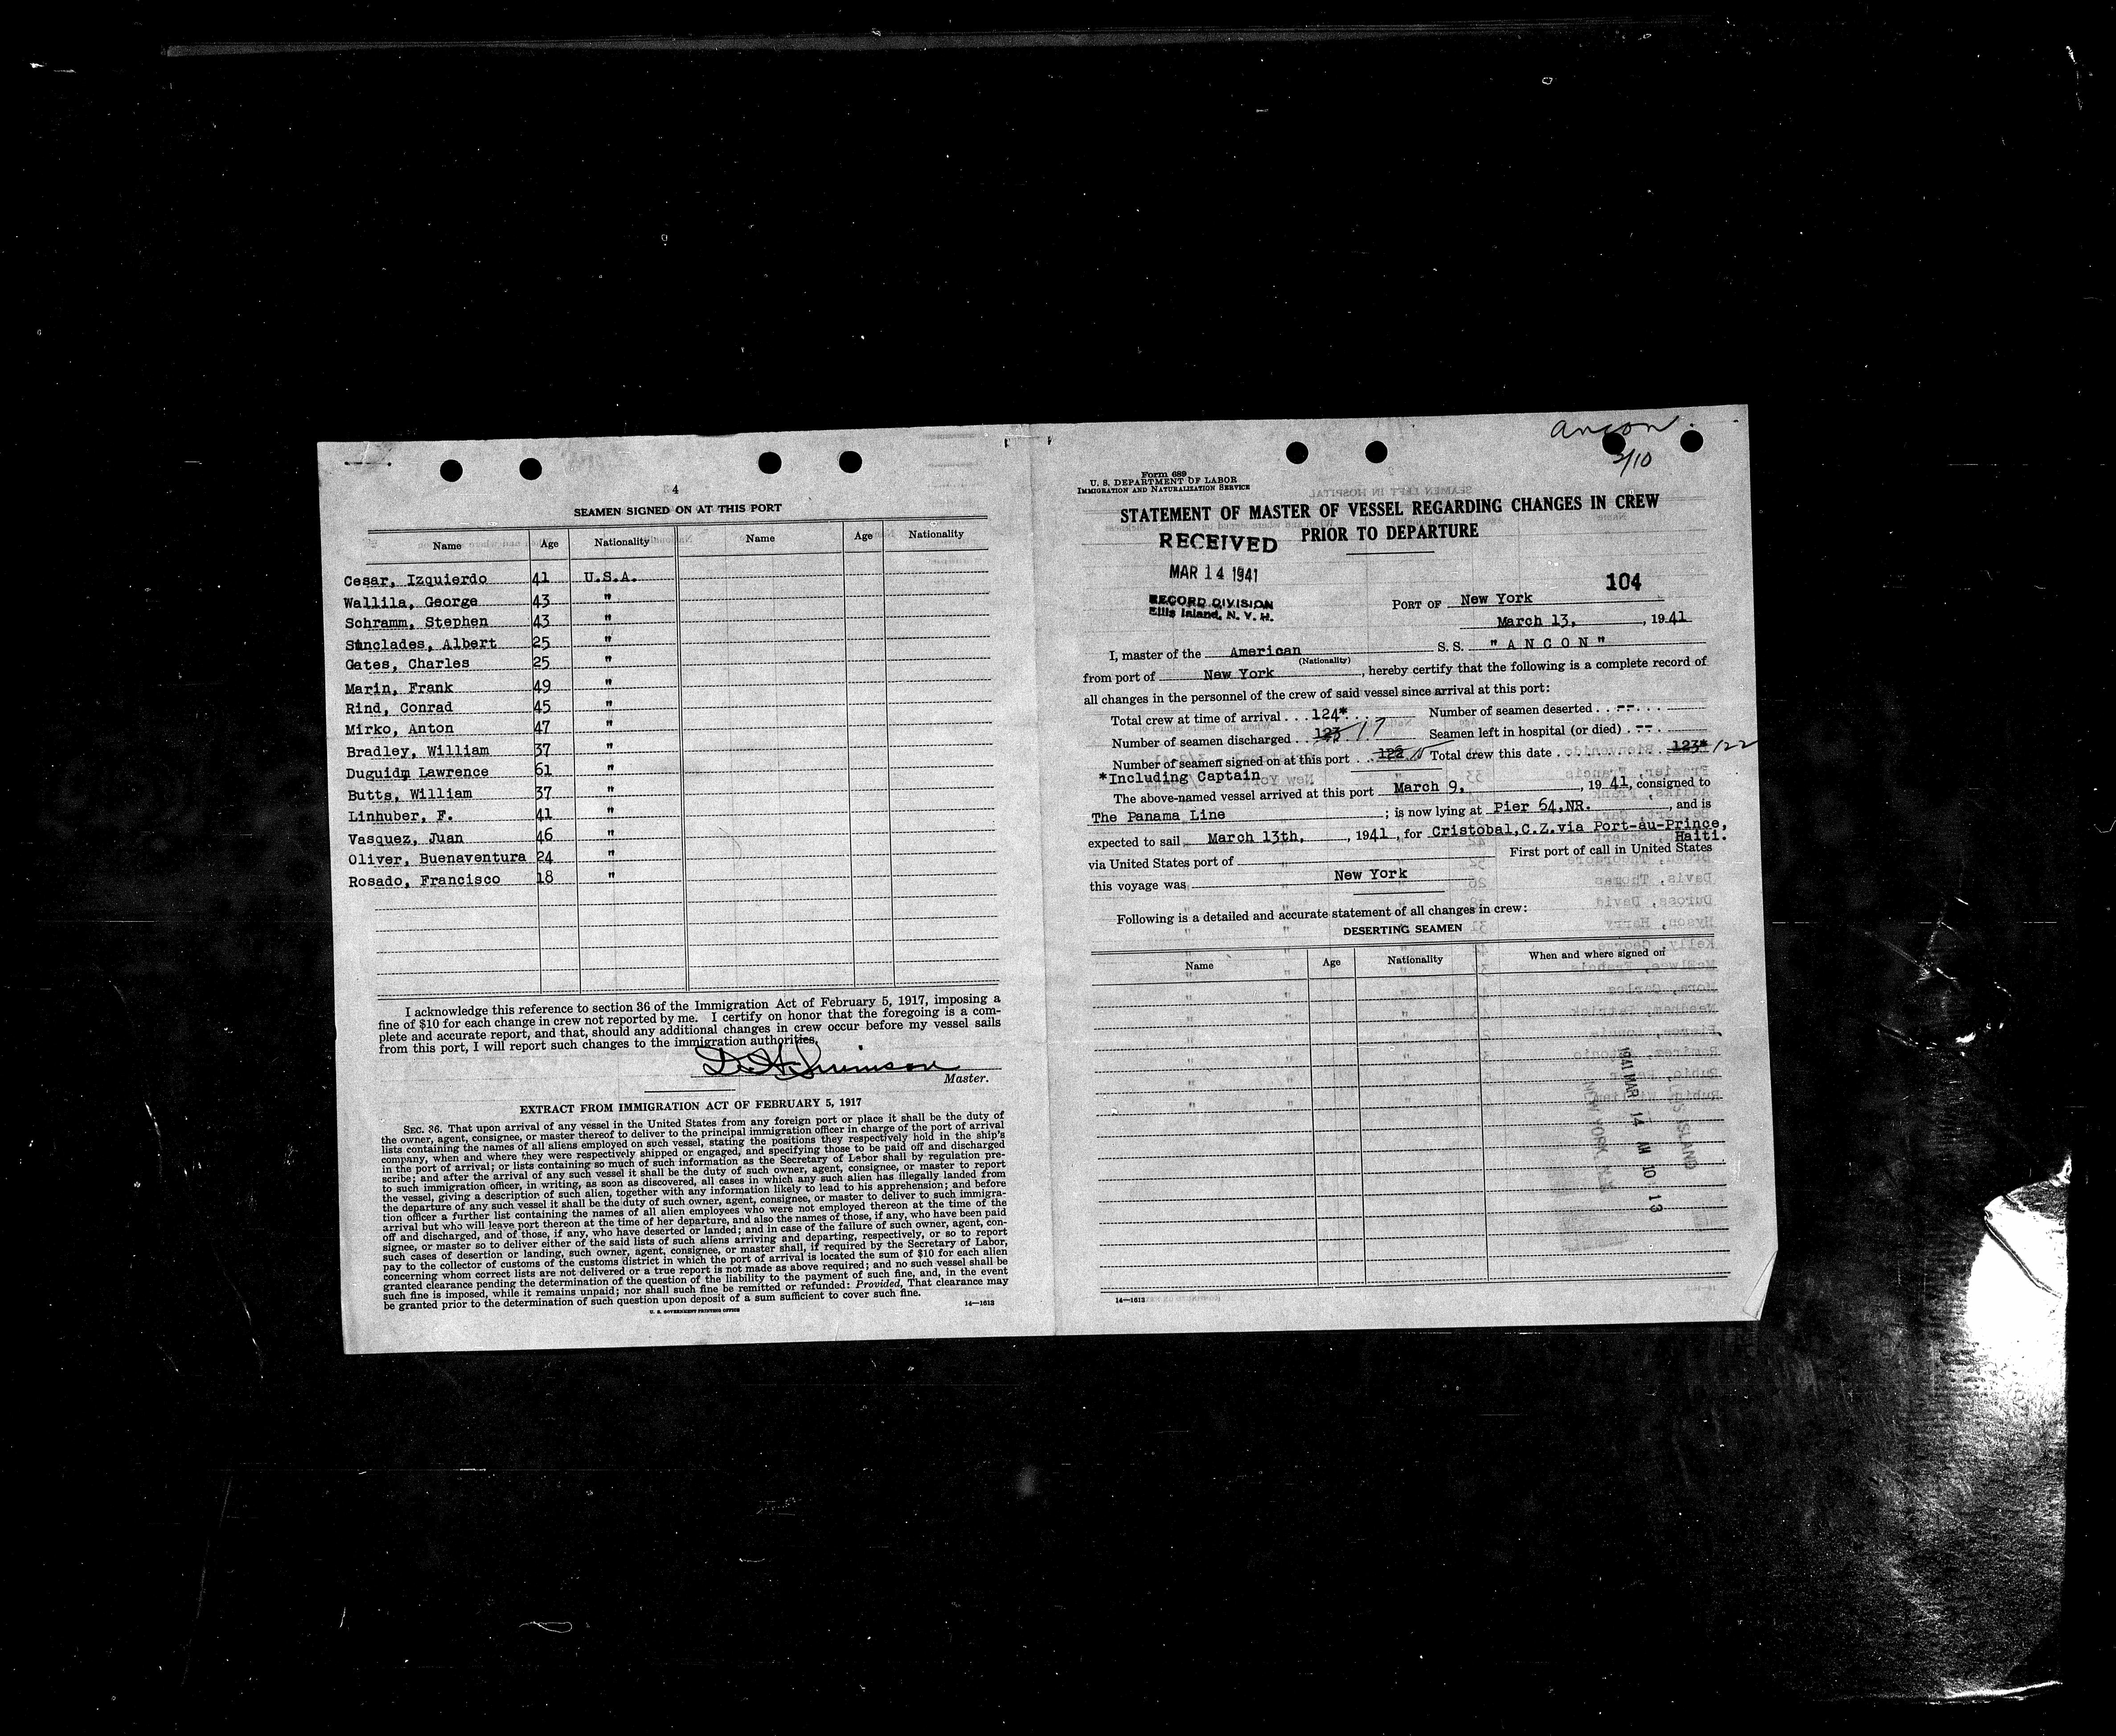 4
SEAMEN SIGNED ON AT THIS PORT
Name Age Nationality Name Age Nationality
Cesar, Izquierdo 41 U.S.A.
Wallila, George 43 "
Schramm, Stephen 43 "
Sunclades, Albert 25 "
Gates, Charles 25 "
Marin, Frank 49 "
Rind, Conrad 45 "
Mirko, Anton 47 "
Bradley, William 37 "
Duguidm Lawrence 61 "
Butts, William 37 "
Linhuber, F. 41 "
Vasquez, Juan 46 "
Oliver, Buenaventura 24 "
Rosado, Francisco 18 "
I acknowledge this reference to section 36 of the Immigration Act of February 5, 1917, imposing a
fine of $10 for each change in crew not reported by me. I certify on honor that the foregoing is a com-
plete and accurate report, and that, should any additional changes in crew occur before my vessel sails
from this port, I will report such changes to the immigration authorities.
Master.
EXTRACT FROM IMMIGRATION ACT OF FEBRUARY 5, 1917
SEC. 36. That upon arrival of any vessel in the United States from any foreign port or place it shall be the duty of
the owner, agent, consignee, or master thereof to deliver to the principal immigration officer in charge of the port of arrival
lists containing the names of all aliens employed on such vessel, stating the positions they respectively hold in the ship's
company, when and where they were respectively shipped or engaged, and specifying those to be paid off and discharged
in the port of arrival; or lists containing so much of such information as the Secretary of Labor shall by regulation pre-
scribe; and after the arrival of any such vessel it shall be the duty of such owner, agent, consignee, or master to report
to such immigration officer, in writing, as soon as discovered, all cases in which any such alien has illegally landed from
the vessel, giving a description of such alien, together with any information likely to lead to his apprehension; and before
the departure of any such vessel it shall be the duty of such owner, agent, consignee, or master to deliver to such immigra-
tion officer a further list containing the names of all alien employees who were not employed thereon at the time of the
arrival but who will leave port thereon at the time of her departure, and also the names of those, if any, who have been paid
off and discharged, and of those, if any, who have deserted or landed; and in case of the failure of such owner, agent, con-
signee, or master so to deliver either of the said lists of such aliens arriving and departing, respectively, or so to report
such cases of desertion or landing, such owner, agent, consignee, or master shall, if required by the Secretary of Labor,
pay to the collector of customs of the customs district in which the port of arrival is located the sum of $10 for each alien
concerning whom correct lists are not delivered or a true report is not made as above required; and no such vessel shall be
granted clearance pending the determination of the question of the liability to the payment of such fine, and, in the event
such fine is imposed, while it remains unpaid; nor shall such fine be remitted or refunded: Provided, That clearance may
be granted prior to the determination of such question upon deposit of a sum sufficient to cover such fine.
U. S. GOVERNMENT PRINTING OFFICE 14—1613
Ancon
3/10
Form 689
U. S. DEPARTMENT OF LABOR
IMMIGRATION AND NATURALIZATION SERVICE
STATEMENT OF MASTER OF VESSEL REGARDING CHANGES IN CREW
PRIOR TO DEPARTURE
RECEIVED
MAR 14 1941
RECORD DIVISION
Ellis Island, N. Y. H.
104
PORT OF New York
March 13, , 1941
I, master of the American S. S. "ANCON"
(Nationality)
from port of New York , hereby certify that the following is a complete record of
all changes in the personnel of the crew of said vessel since arrival at this port:
Total crew at time of arrival . . . 124* . . Number of seamen deserted . . --. . .
Number of seamen discharged . . 123 17 Seamen left in hospital (or died) . --. .
Number of seamen signed on at this port . . . 122 15 Total crew this date . . . . . . . . 123* 122
*Including Captain
The above-named vessel arrived at this port March 9, , 1941, consigned to
The Panama Line ; is now lying at Pier 64,NR. , and is
expected to sail March 13th, , 1941, for Cristobal,C.Z.via Port-au-Prince,
Haiti.
via United States port of First port of call in United States
this voyage was New York
Following is a detailed and accurate statement of all changes in crew:
DESERTING SEAMEN
Name Age Nationality When and where signed on
1941 MAR 14 AM 10 13
14—1613